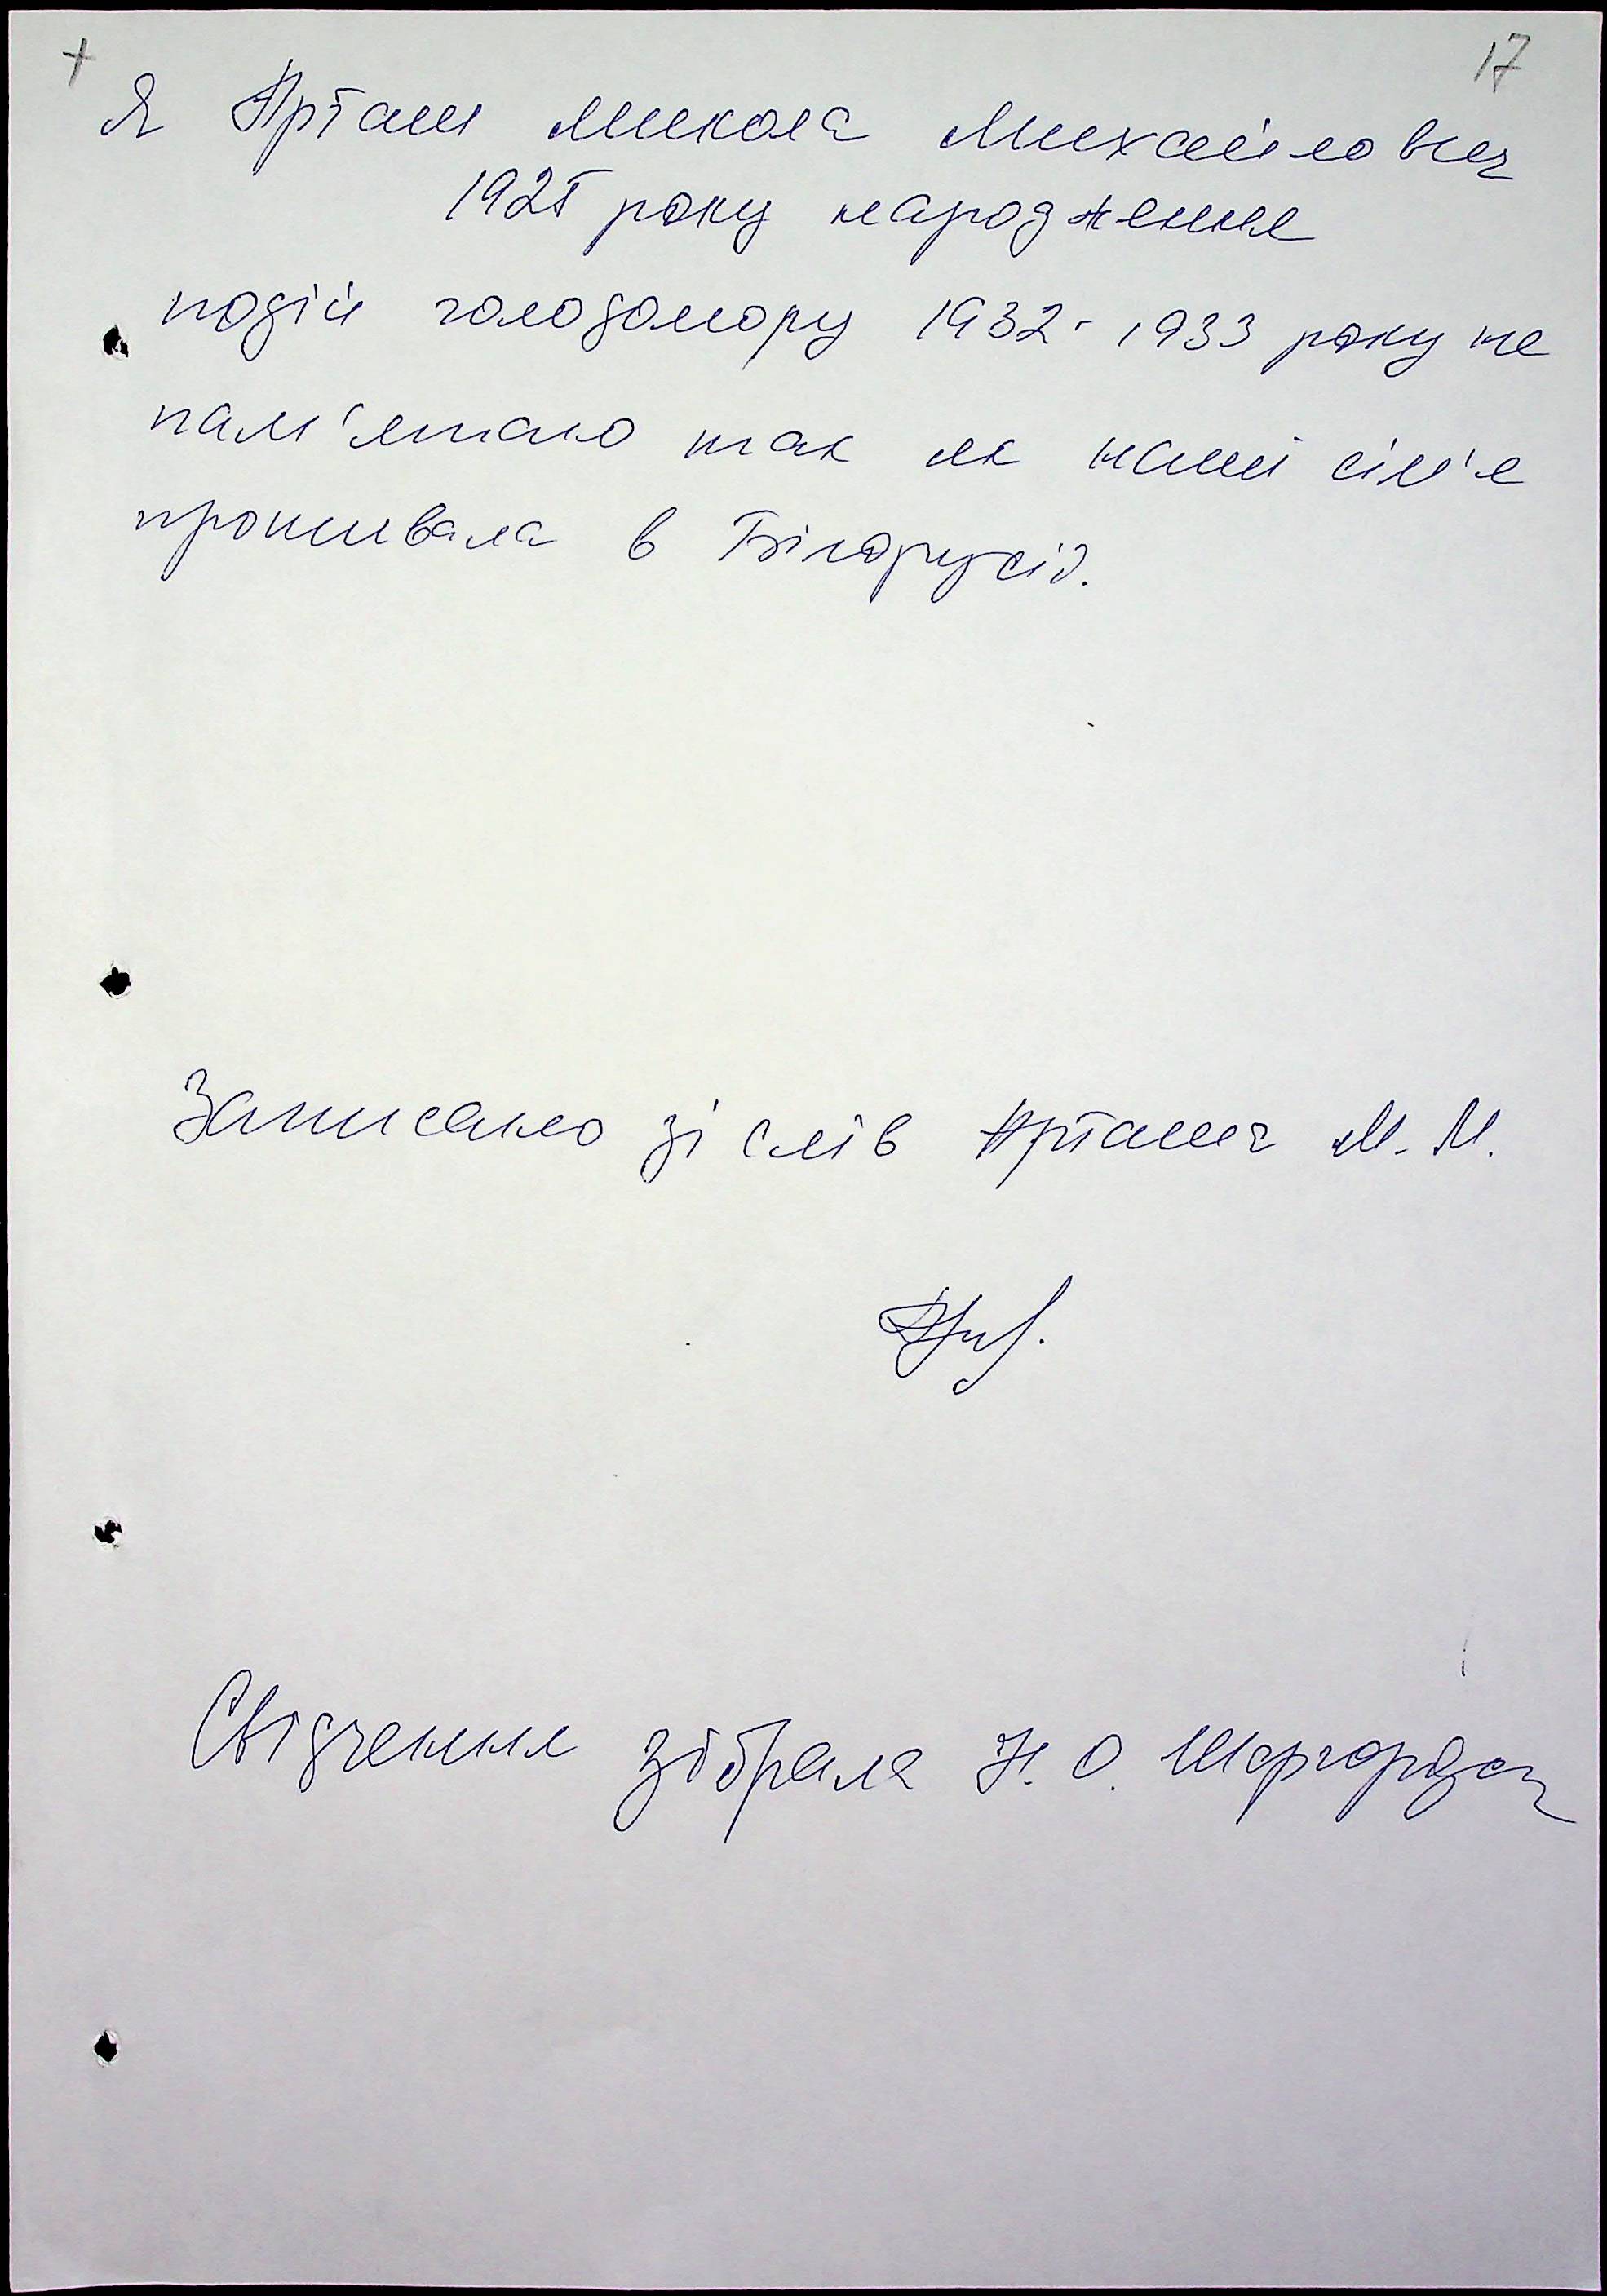 17
Я Арташ Микола Михайлович
1925 року народження
подій голодомору 1932-1933 року не
пам'ятаю так як наші сім'я
проживала в Білорусії.
Записано зі слів Арташа М. М.
Свідчення зібрала Н. О.